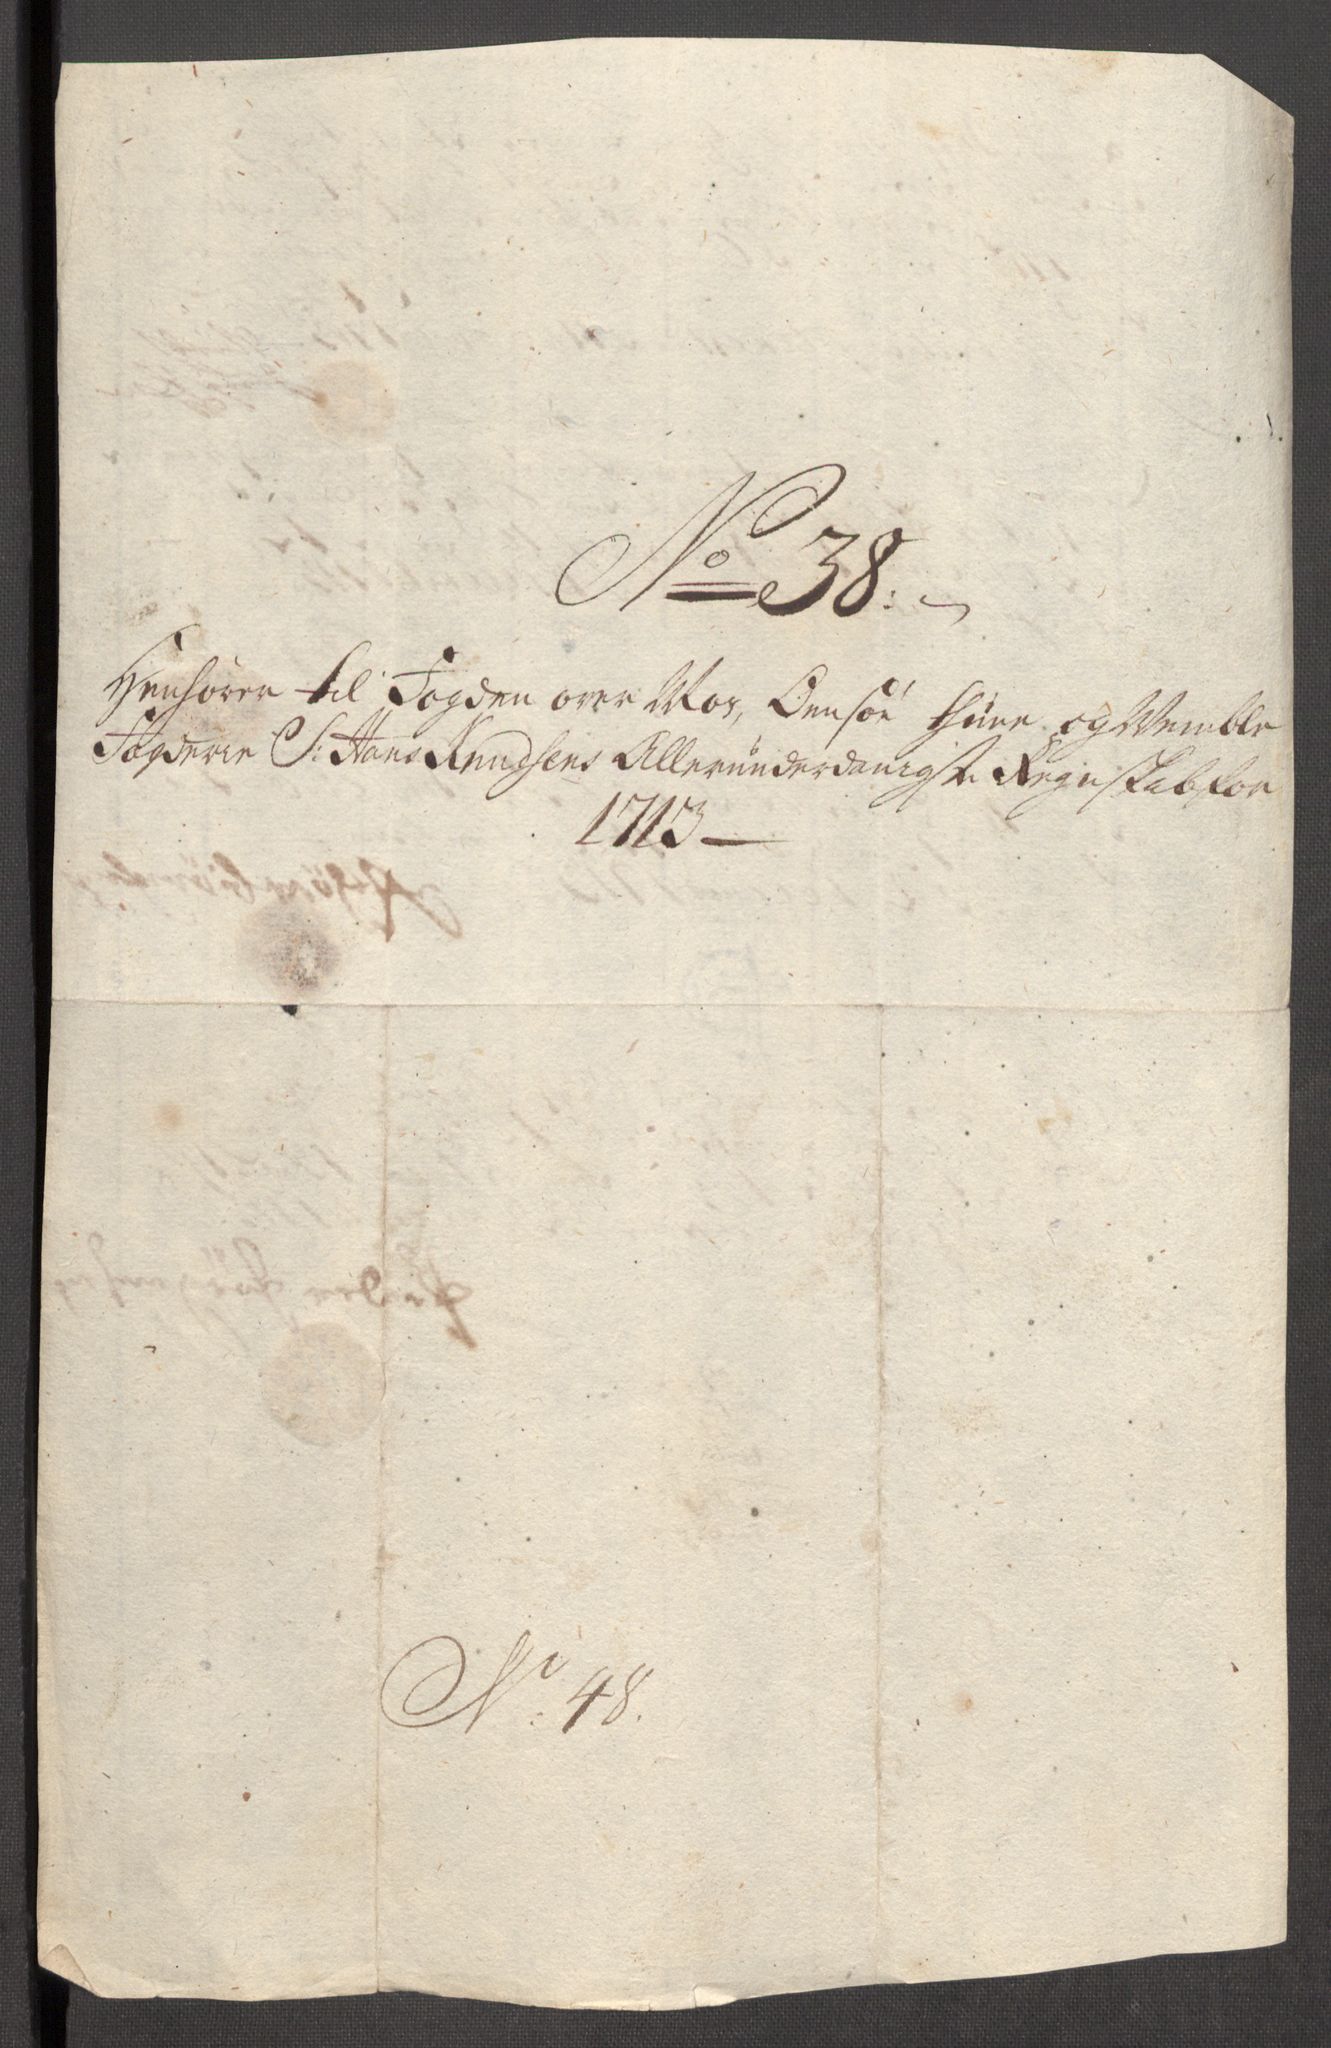 No 38.
Henhører til Fogden over Mos, Oensøe thüne og Wemble
Fogderie S: Hans Knudsens Alleründerdanigste Regnskab for
1713
No: 48.